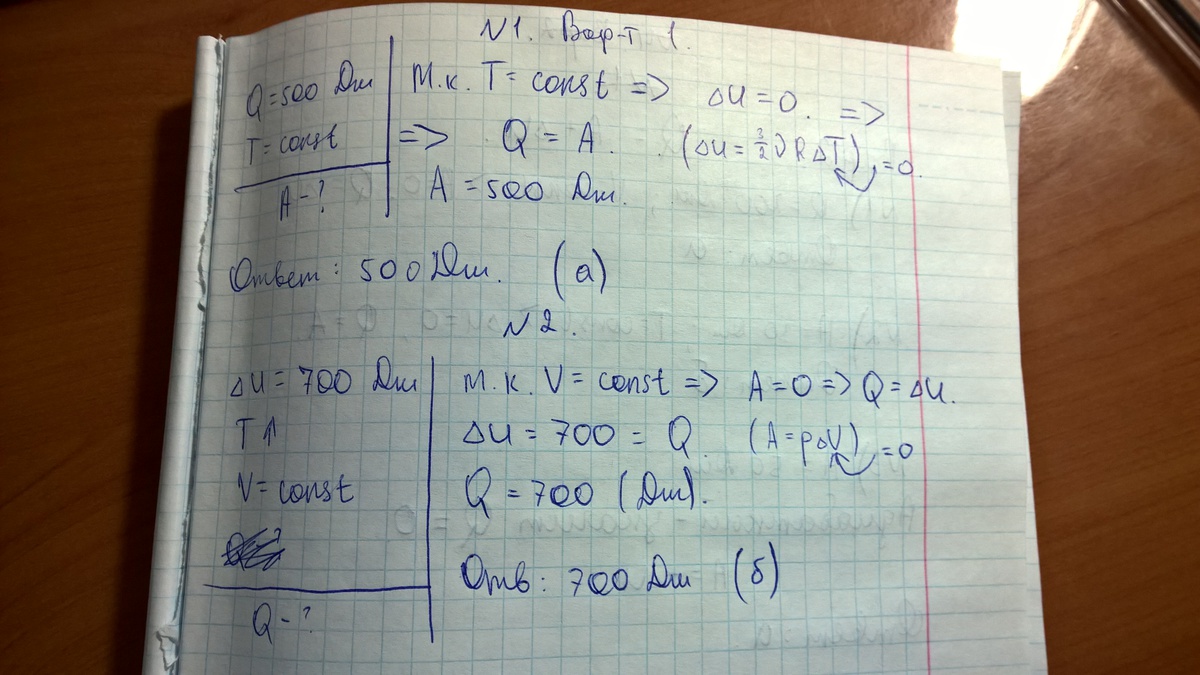 N1. Вар-т 1.
Q=500 Дж
T=const
A-?
Т.к. T=const => ΔU=0. =>
=> Q=A. (ΔU=3/2νRΔT) =0.
A=500 Дж.
Ответ: 500 Дж. (а)
N2.
ΔU=700 Дж
T↑
V=const
Q-?
Т.к. V=const => A=0 => Q=ΔU.
ΔU=700=Q. (A=pΔV) =0
Q=700 (Дж).
Отв: 700 Дж (б)